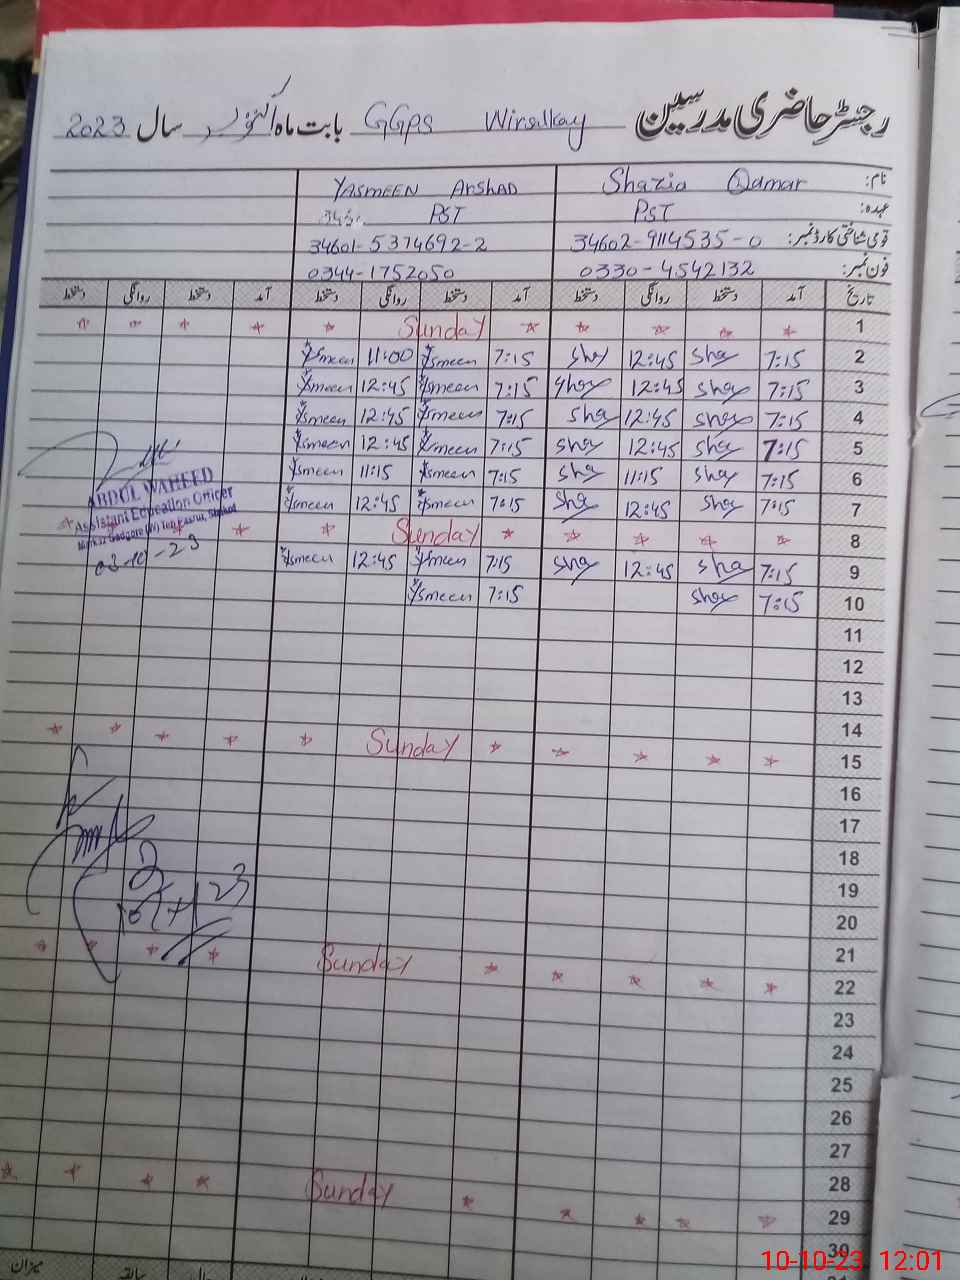 رجسٹر حاضری مدرسین GGPS Wirsalkay بابت ماہ اکتوبر سال 2023
نام: Shazia Qamar YASMEEN ArSHAD
عہدہ: PST PST
قومی شناختی کارڈ نمبر: 34602-9114535-0 34601-5374692-2
فون نمبر: 0330-4542132 0344-1752050
تاریخ آمد دستخط روانگی دستخط آمد دستخط روانگی دستخط آمد دستخط روانگی دستخط
1 Sunday
2 7:15 Sha 12:45 Sha 7:15 Ysmeen 11:00 Ysmeen
3 7:15 Sha 12:45 Sha 7:15 Ysmeen 12:45 Ysmeen
4 7:15 Sha 12:45 Sha 7:15 Ysmeen 12:45 Ysmeen
5 7:15 Sha 12:45 Sha 7:15 Ysmeen 12:45 Ysmeen
6 7:15 Sha 11:15 Sha 7:15 Ysmeen 11:15 Ysmeen
7 7:15 Sha 12:45 Sha 7:15 Ysmeen 12:45 Ysmeen
ABDUL WAHEED
Assistant Education Officer
03-10-23
8 Sunday
9 7:15 Sha 12:45 Sha 7:15 Ysmeen 12:45 Ysmeen
10 7:15 Sha 7:15 Ysmeen
11
12
13
14
15 Sunday
16
17
18
19
20
21
22 Sunday
23
24
25
26
27
28
29 Sunday
30
میزان سابقہ
10-10-23 12:01